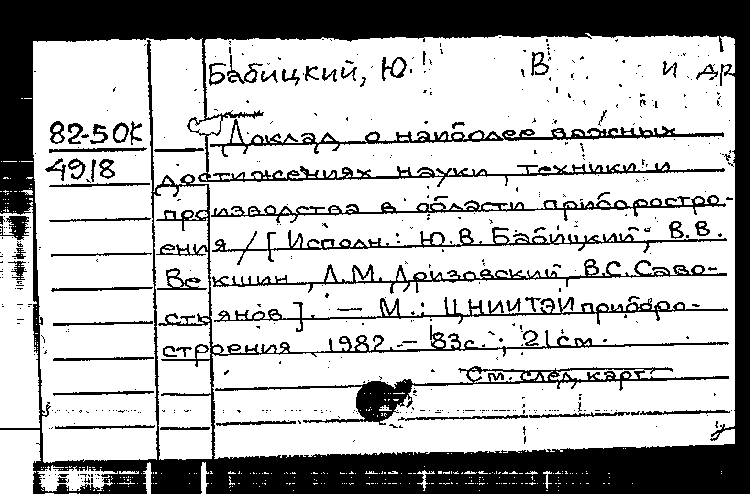 Бабицкий, Ю. В. и др
82-5 ОК Доклад о наиболее важных
4918 достижениях науки, техники и
производства в области приборостро-
ения / [Исполн.: Ю.В. Бабицкий, В.В.
Векшин, Л.М. Дризовский, В.С. Саво-
стьянов]. — М.: ЦНИИТЭИприборо-
строения 1982. — 83с.; 21см.
См. след. карт.